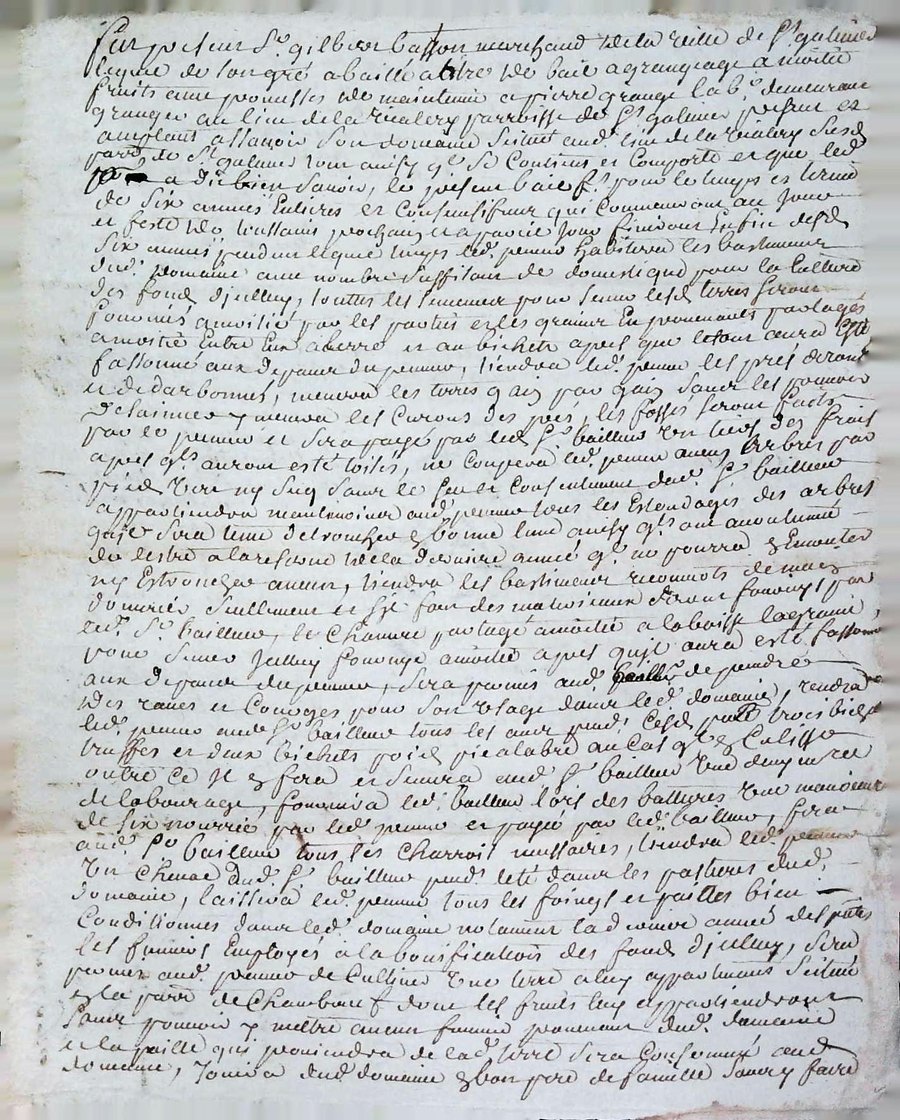 fut present Sr. gilbert basson marchand de la ville de St. galmier
lequel de son gré a baillé a titre de bail a grangeage a moitié
fruits avec promesses de maintenir a pierre grange lab.r demeurant
granger au lieu de la parroisse de St galmier present et
acceptant assavoir son domaine scitué aud. lieu de la susd.
parr. de St galmier tout ainsy q.l se contient et comporte et que led.
a dit bien savoir, le present bail f.t pour le temps et terme
de six années entieres et consecutives qui commenceront au jour
et feste de toussains prochain et a pareil jour finiront en fin desd.
six années pendant lequel temps led. preneur habitera les bastimens
dud. domaine avec nombre suffisant de domestiques pour la culture
des fonds d'jcelluy, touttes les semences pour semer lesd. terres seront
fournies a moitié par les parties et les graines en provenants partagés
a moitié entre eux a et au bichet apres que le tout aura esté
fassonné aux depends du preneur, tiendra led. preneur les prés
et , menera les terres gain par gain sans les pouvoir
menera les curons des prés, les fosses seront faits
par le preneur et sera payé par led. Sr. bailleur un tiers des frais
apres q.ls auront esté toisés, ne coupera led. preneur aucuns arbres par
pied vert ny secq sans le gré et consentement dud. Sr. bailleur
appartiendra neantmoins aud. preneur tous les estondages des arbres
qu'il sera tenu d' en bonne lune ainsy q.ls ont accoutumé
de l'estre a la reserve de la derniere année q.l ne pourra en emonter
ny aucun, tiendra les bastimens recouverts de main
d'ouvriés seullement et s'il faut des materiaux seront fournis par
led. Sr. bailleur, le chanvre partagé a moitié a la boisse la graine
pour semer jcelluy fournye a moitié apres qu'jl aura esté fassonné
aux depends du preneur, sera permis aud. de prendre
des raves et courges pour son usage dans led. domaine, rendra
led. preneur aud. Sr. bailleur tous les ans pend.t trois bichets
truffes et deux bichets pois au cas q.l en cullisse
outre ce jl en fera et semera aud. Sr. bailleur une
de labourage, fournira led. bailleur lors des battures une
de six nourrie par led. preneur et payée par led. bailleur, fera
aud. Sr bailleur tous les charrois necessaires, tiendra led. preneur
un cheval dud. Sr. bailleur pend.t leté dans les pastures dud.
domaine, laissera led. preneur tous les foins et pailles bien
conditionnés dans led. domaine notament la derniere année des
les fumiers employés a la bonification des fonds d'jcelluy, sera
permis aud. preneur de cultiver une terre a luy appartenant scituée
en la parr. de Chambeuf dont les fruits luy appartiendront
sans pouvoir y mettre aucun fumier provenant dud. domaine
et la paille qui proviendra de lad. terre sera consommée aud.
domaine, jouira dud. domaine en bon pere de famille sans y faire